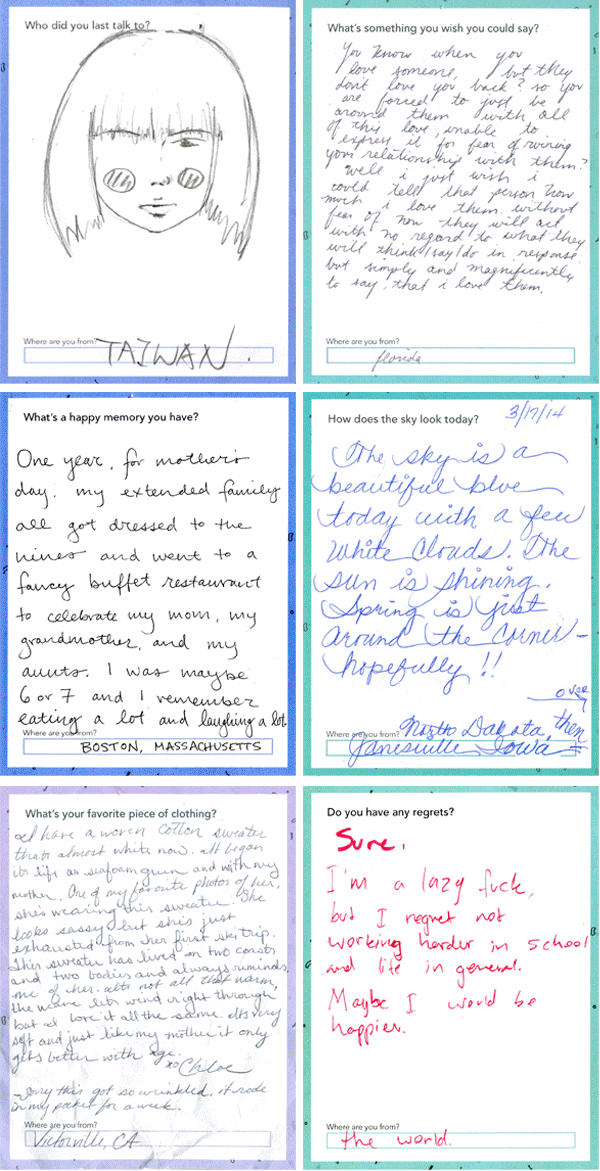 Who did you last talk to?
Where are you from?
TAIWAN.
What's something you wish you could say?
You know when you
love someone, but they
don't love you back? so you
are forced to just be
around them with all
of this love, unable to
express it for fear of ruining
your relationship with them?
Well i just wish i
could tell that person how
much i love them. without
fear of how they will act
with no regard to what they
will think/say/do in response
but simply and magnificently
to say that i love them.
Where are you from?
florida
What's a happy memory you have?
One year, for mother's
day, my extended family
all got dressed to the
nines and went to a
fancy buffet restaurant
to celebrate my mom, my
grandmother, and my
aunts. I was maybe
6 or 7 and I remember
eating a lot and laughing a lot.
Where are you from?
BOSTON, MASSACHUSETTS
How does the sky look today?
3/17/14
The sky is a
beautiful blue
today with a few
white clouds. The
sun is shining.
Spring is just
around the corner -
hopefully!!
over
Where are you from?
North Dakota, then
Janesville Iowa
What's your favorite piece of clothing?
I have a woven cotton sweater
thats almost white now. It began
its life as seafoam green and with my
mother. One of my favorite photos of her,
she's wearing this sweater. She
looks sassy but she's just
exhausted from her first ski trip.
This sweater has lived on two coasts
and two bodies and always reminds
me of her. Its not all that warm,
the weave lets wind right through
but I love it all the same. Its very
soft and just like my mother it only
gets better with age.
xo Chloe
- sorry this got so wrinkled, it rode
in my pocket for a week.
Where are you from?
Victorville, CA
Do you have any regrets?
Sure.
I'm a lazy fuck,
but I regret not
working harder in school
and life in general.
Maybe I would be
happier.
Where are you from?
the world.